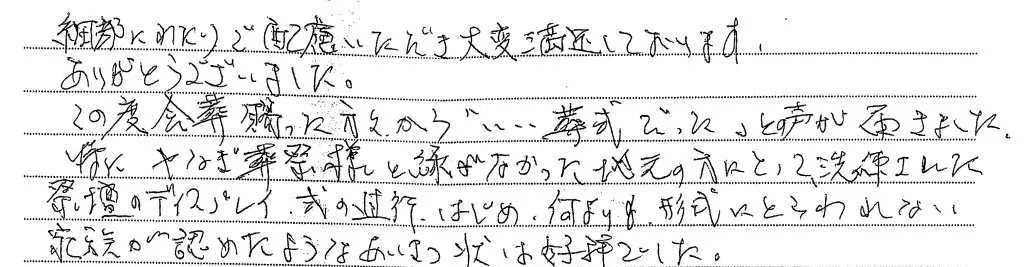 細部にわたりご配慮いただき大変満足しております。
ありがとうございました。
この度会葬賜った方々から「いい葬式だった」との声が届きました。
特にやなぎ葬祭様と縁がなかった地元の方にとって、洗練された
祭壇のディスプレイ、式の進行、はじめ、何よりも、形式にとらわれない
家族が認めたようなあいさつ状は好評でした。